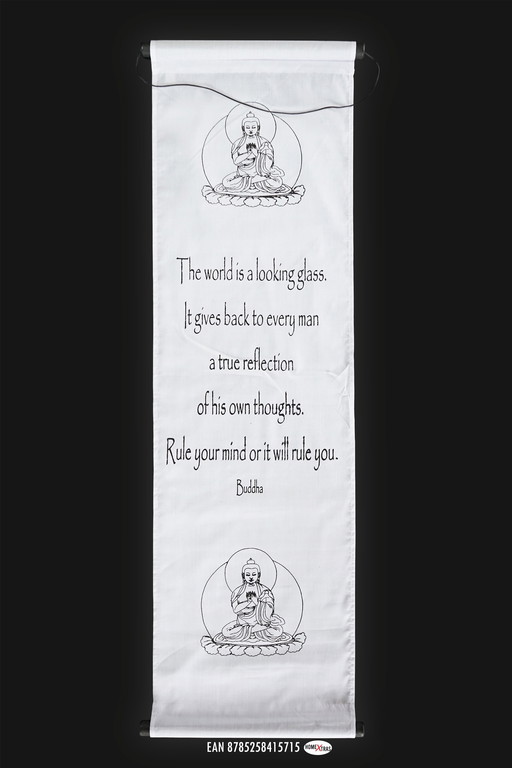 The world is a looking glass.
It gives back to every man
a true reflection
of his own thoughts.
Rule your mind or it will rule you.
Buddha
EAN 8785258415715 HOMEXTRAS